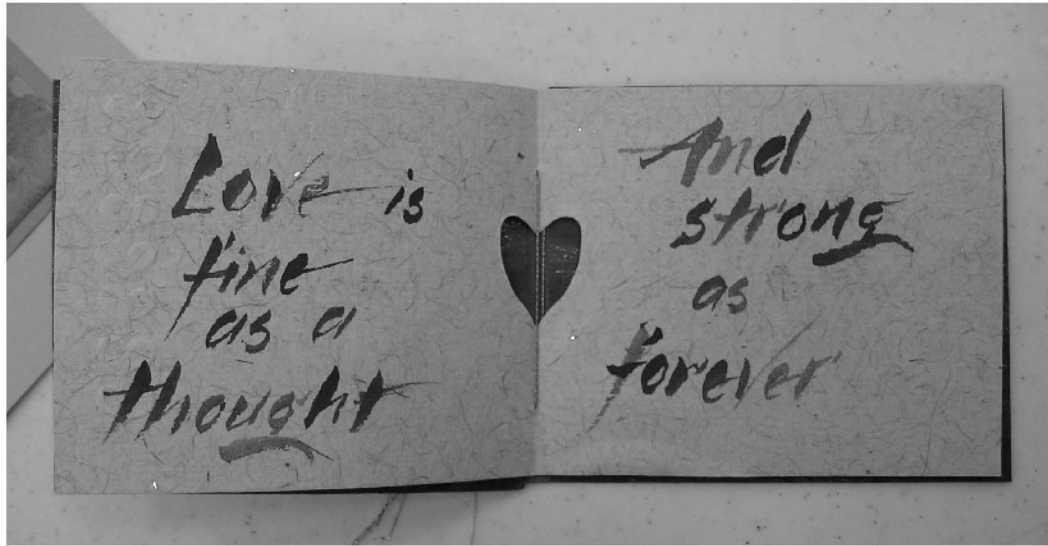 Love is
fine
as a
thought
And
strong
as
forever